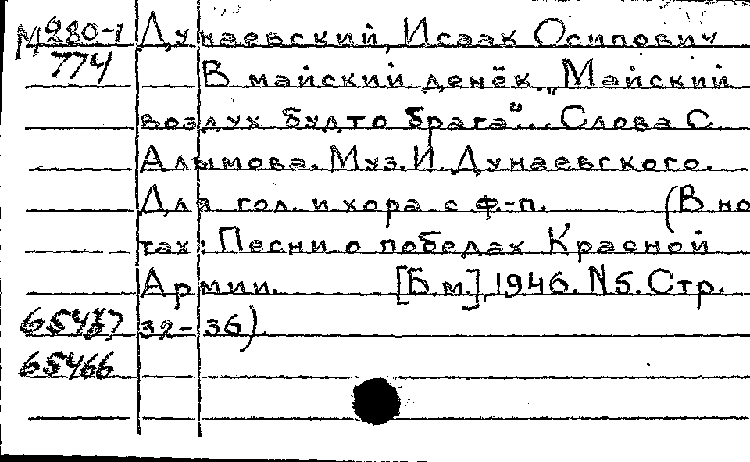 М 280-1 Дунаевский, Исаак Осипович
774 В майский денёк. „Майский
воздух будто брага"... Слова С.
Алымова. Муз. И. Дунаевского.
Для гол. и хора с ф-п. (В но
тах: Песни о победах Красной
Армии. [Б.м.], 1946. N5. Стр.
32-36).
65466